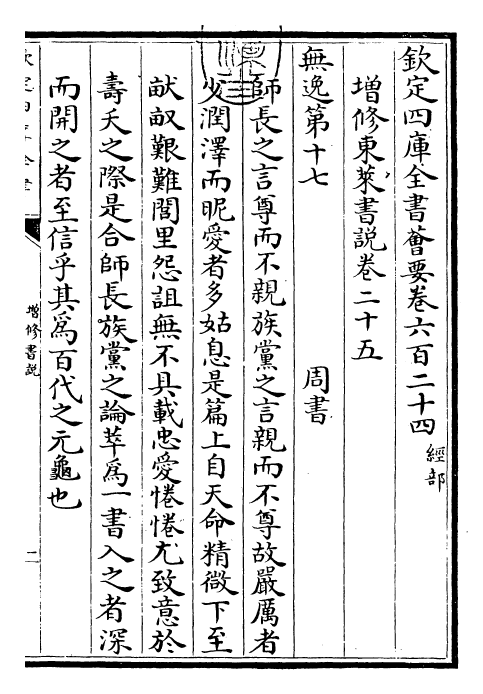 欽定四庫全書薈要卷六百二十四 經部
增修東萊書説卷二十五
無逸第十七 周書
師長之言尊而不親族黨之言親而不尊故嚴厲者
少潤澤而昵愛者多姑息是篇上自天命精微下至
畎畝艱難閭里怨詛無不具載忠愛惓惓尤致意於
壽夭之際是合師長族黨之論萃爲一書入之者深
而開之者至信乎其爲百代之元龜也
欽定四庫全書
增修書説